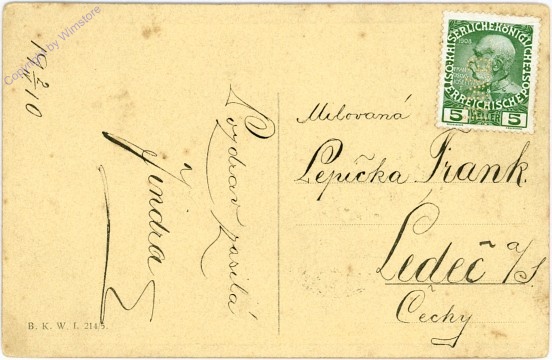 19 2/IV 10
Pozdrav zasílá
Jindra
B. K. W. I. 214/5.
KAISERLICHE KÖNIGLICHE
ÖSTERREICHISCHE
1908
5 5
Milovaná
Lepička Frank.
Ledeč a/S.
Čechy
Copyright by Wimstore